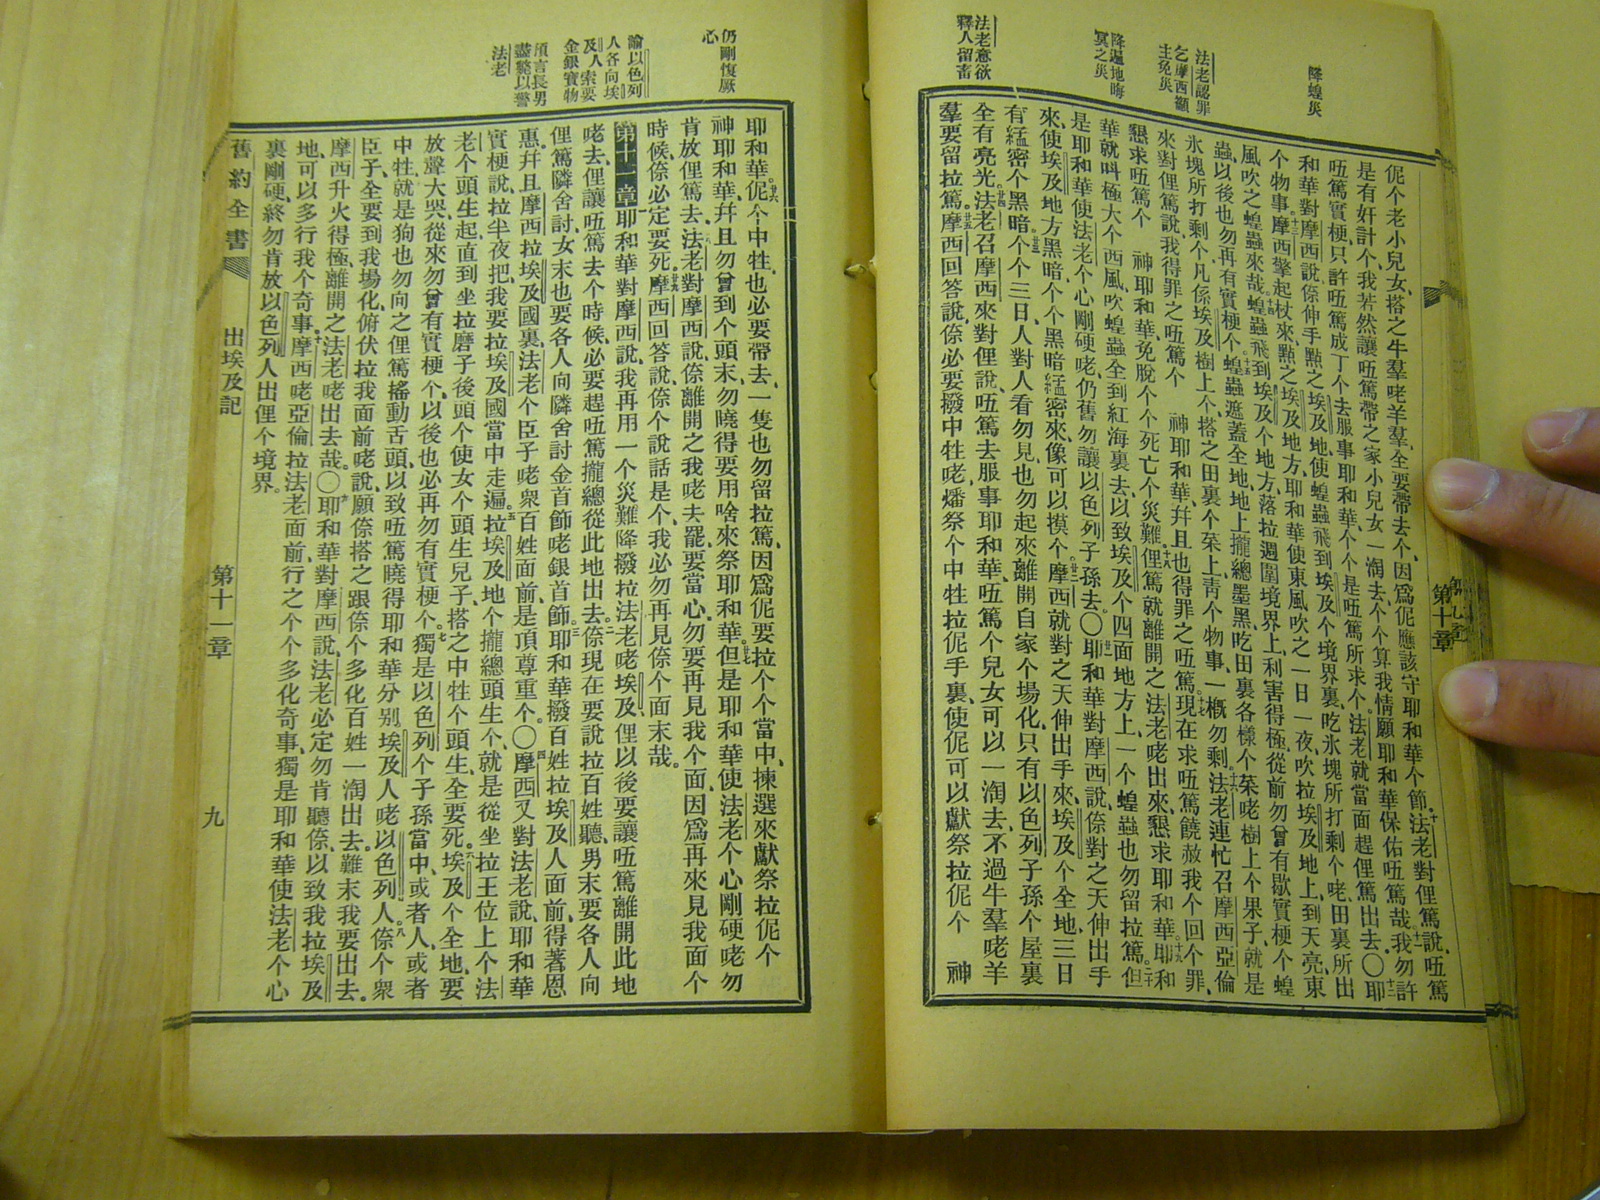 降蝗災
法老認罪
乞摩西籲
主免災
降遍地晦
冥之災
法老意欲
釋人留畜
伲个老小兒女、搭之牛羣咾羊羣、全要帶去个、因爲伲應該守耶和華个節。十法老對俚篤說、㕶篤
是有奸計个、我若然讓㕶篤帶之家小兒女一淘去个、个算我情願耶和華保佑㕶篤哉、我勿許
㕶篤實梗、只許㕶篤成丁个去服事耶和華、个个是㕶篤所求个、法老就當面趕俚篤出去。〇十二耶
和華對摩西說、倷伸手點之埃及地、使蝗蟲飛到埃及个境界裏、吃氷塊所打剩个咾田裏所出
个物事。十三摩西擎起杖來、點之埃及地方、耶和華使東風吹之一日一夜、吹拉埃及地上、到天亮、東
風吹之蝗蟲來哉。十四蝗蟲飛到埃及个地方、落拉週圍境界上、利害得極、從前勿曾有歇實梗个蝗
蟲、以後也勿再有實梗个。十五蝗蟲遮蓋全地、地上攏總墨黑、吃田裏各樣个菜咾樹上个果子、就是
氷塊所打剩个、凡係埃及樹上个、搭之田裏个菜上、靑个物事、一槪勿剩。十六法老連忙召摩西亞倫
來、對俚篤說、我得罪之㕶篤个　神耶和華、幷且也得罪之㕶篤。十七現在求㕶篤饒赦我个回个罪、
懇求㕶篤个　神耶和華、免脫个个死亡个災難。十八俚篤就離開之法老咾出來、懇求耶和華。十九耶和
華就呌極大个西風、吹蝗蟲全到紅海裏去、以致埃及个四面地方上、一个蝗蟲也勿留拉篤。二十但
是耶和華使法老个心剛硬咾、仍舊勿讓以色列子孫去。〇廿一耶和華對摩西說、倷對之天伸出手
來、使埃及地方黑暗、个个黑暗、緜密來像可以摸个。廿二摩西就對之天伸出手來、埃及个全地、三日
有緜密个黑暗。廿三个个三日、人對人看勿見、也勿起來離開自家个場化、只有以色列子孫个屋裏
全有亮光。廿四法老召摩西來對俚說、㕶篤去服事耶和華、㕶篤个兒女可以一淘去、不過牛羣咾羊
羣、要留拉篤。廿五摩西回答說、倷必要撥中牲咾、燔祭个中牲拉伲手裏、使伲可以獻祭拉伲个　神
第十章
仍剛愎厥
心
諭以色列
人各向埃
及人索要
金銀寶物
預言長男
盡斃以警
法老
耶和華。廿六伲个中牲、也必要帶去、一隻也勿留拉篤、因爲伲要拉个个當中、揀選來獻祭拉伲个
神耶和華、幷且勿曾到个頭末、勿曉得要用啥來祭耶和華。廿七但是耶和華使法老个心剛硬咾、勿
肯放俚篤去。廿八法老對摩西說、倷離開之我咾去罷、要當心、勿要再見我个面、因爲再來見我面个
時候、倷必定要死。廿九摩西回答說、倷个說話是个、我必勿再見倷个面末哉。
第十一章 耶和華對摩西說、我再用一个災難、降撥拉法老咾埃及、俚以後要讓㕶篤離開此地
咾去、俚讓㕶篤去个時候、必要趕㕶篤攏總從此地出去。二倷現在要說拉百姓聽、男末要各人向
俚篤隣舍討、女末也要各人向隣舍討金首飾咾銀首飾。三耶和華撥百姓拉埃及人面前得著恩
惠、幷且摩西拉埃及國裏、法老个臣子咾衆百姓面前、是頂尊重个。〇四摩西又對法老說、耶和華
實梗說、拉半夜把、我要拉埃及國當中走遍。五拉埃及地个攏總頭生个、就是從坐拉王位上个法
老个頭生起、直到坐拉磨子後頭个使女个頭生兒子、搭之中牲个頭生、全要死。六埃及个全地、要
放聲大哭、從來勿曾有實梗个、以後也必再勿有實梗个。七獨是以色列个子孫當中、或者人、或者
中牲、就是狗也勿向之俚篤搖動舌頭、以致㕶篤曉得耶和華分别埃及人咾以色列人。八倷个衆
臣子、全要到我場化俯伏拉我面前咾說、願倷搭之跟倷个多化百姓一淘出去、難末我要出去。
摩西升火得極、離開之法老咾出去哉。〇九耶和華對摩西說、法老必定勿肯聽倷、以致我拉埃及
地可以多行我个奇事。十摩西咾亞倫、拉法老面前、行之个个多化奇事、獨是耶和華使法老个心
裏剛硬、終勿肯放以色列人出俚个境界。
舊約全書　出埃及記　第十一章　九